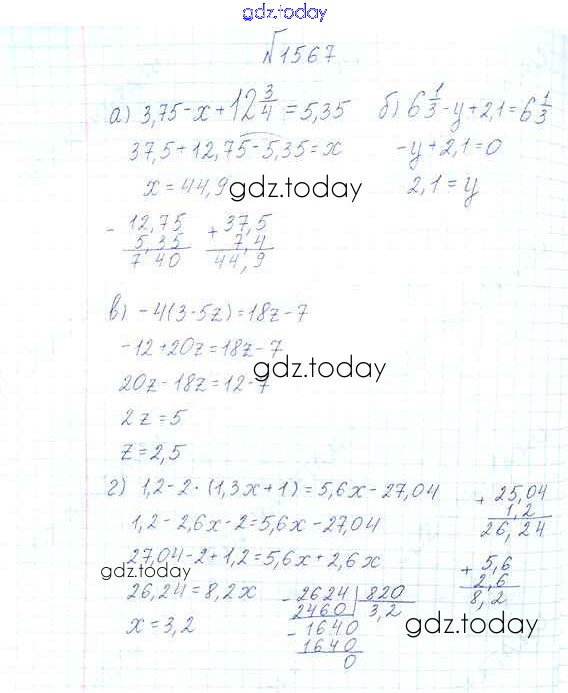 gdz.today
№1567
а) 3,75-x+12 3/4=5,35
37,5+12,75-5,35=x
x=44,9
gdz.today
- 12,75
5,35
7,40
+ 37,5
7,4
44,9
б) 6 1/3-y+2,1=6 1/3
-y+2,1=0
2,1=y
в) -4(3-5z)=18z-7
-12+20z=18z-7
gdz.today
20z-18z=12-7
2z=5
z=2,5
г) 1,2-2·(1,3x+1)=5,6x-27,04
1,2-2,6x-2=5,6x-27,04
27,04-2+1,2=5,6x+2,6x
gdz.today
26,24=8,2x
x=3,2
- 2624 820
2460 3,2
- 1640
1640
0
+ 25,04
1,2
26,24
+ 5,6
2,6
8,2
gdz.today